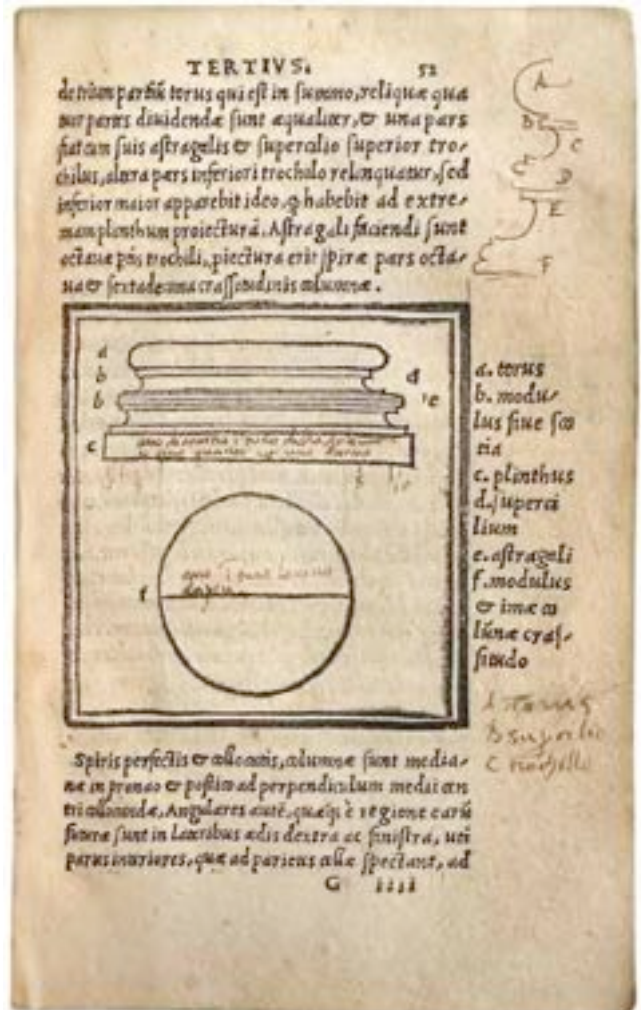 TERTIVS. 52
de trium partiũ torus qui est in summo, reliquæ qua
tuor partes diuidendæ sunt æqualiter, & una pars
fiat cum suis astragalis & supercilio superior tro-
chilus, altera pars inferiori trochilo relinquatur, sed
inferior maior apparebit ideo, ꝙ habebit ad extre-
mam plinthum proiecturã. Astragali faciendi sunt
octauæ trochili, piectura erit spiræ pars octa-
ua & sextadecima crassitudinis columnæ.
A
B
C
C
D
E
F
a
b
b
c
d
e
f
a. torus
b. modu-
lus siue sco
tia
c. plinthus
d. superci
lium
e. astragali
f. modulus
& imæ co
lũnæ cras-
situdo
A torus
B
C
Spiris perfectis & collocatis, columnæ sunt media-
næ in pronao & postico ad perpendiculum medii cen
tri collocandæ, Angulares autẽ, quæq; è regione earũ
futuræ sunt in lateribus ædis dextra ac sinistra, uti
partes interiores, quæ ad parietes cellæ spectant, ad
G iiii